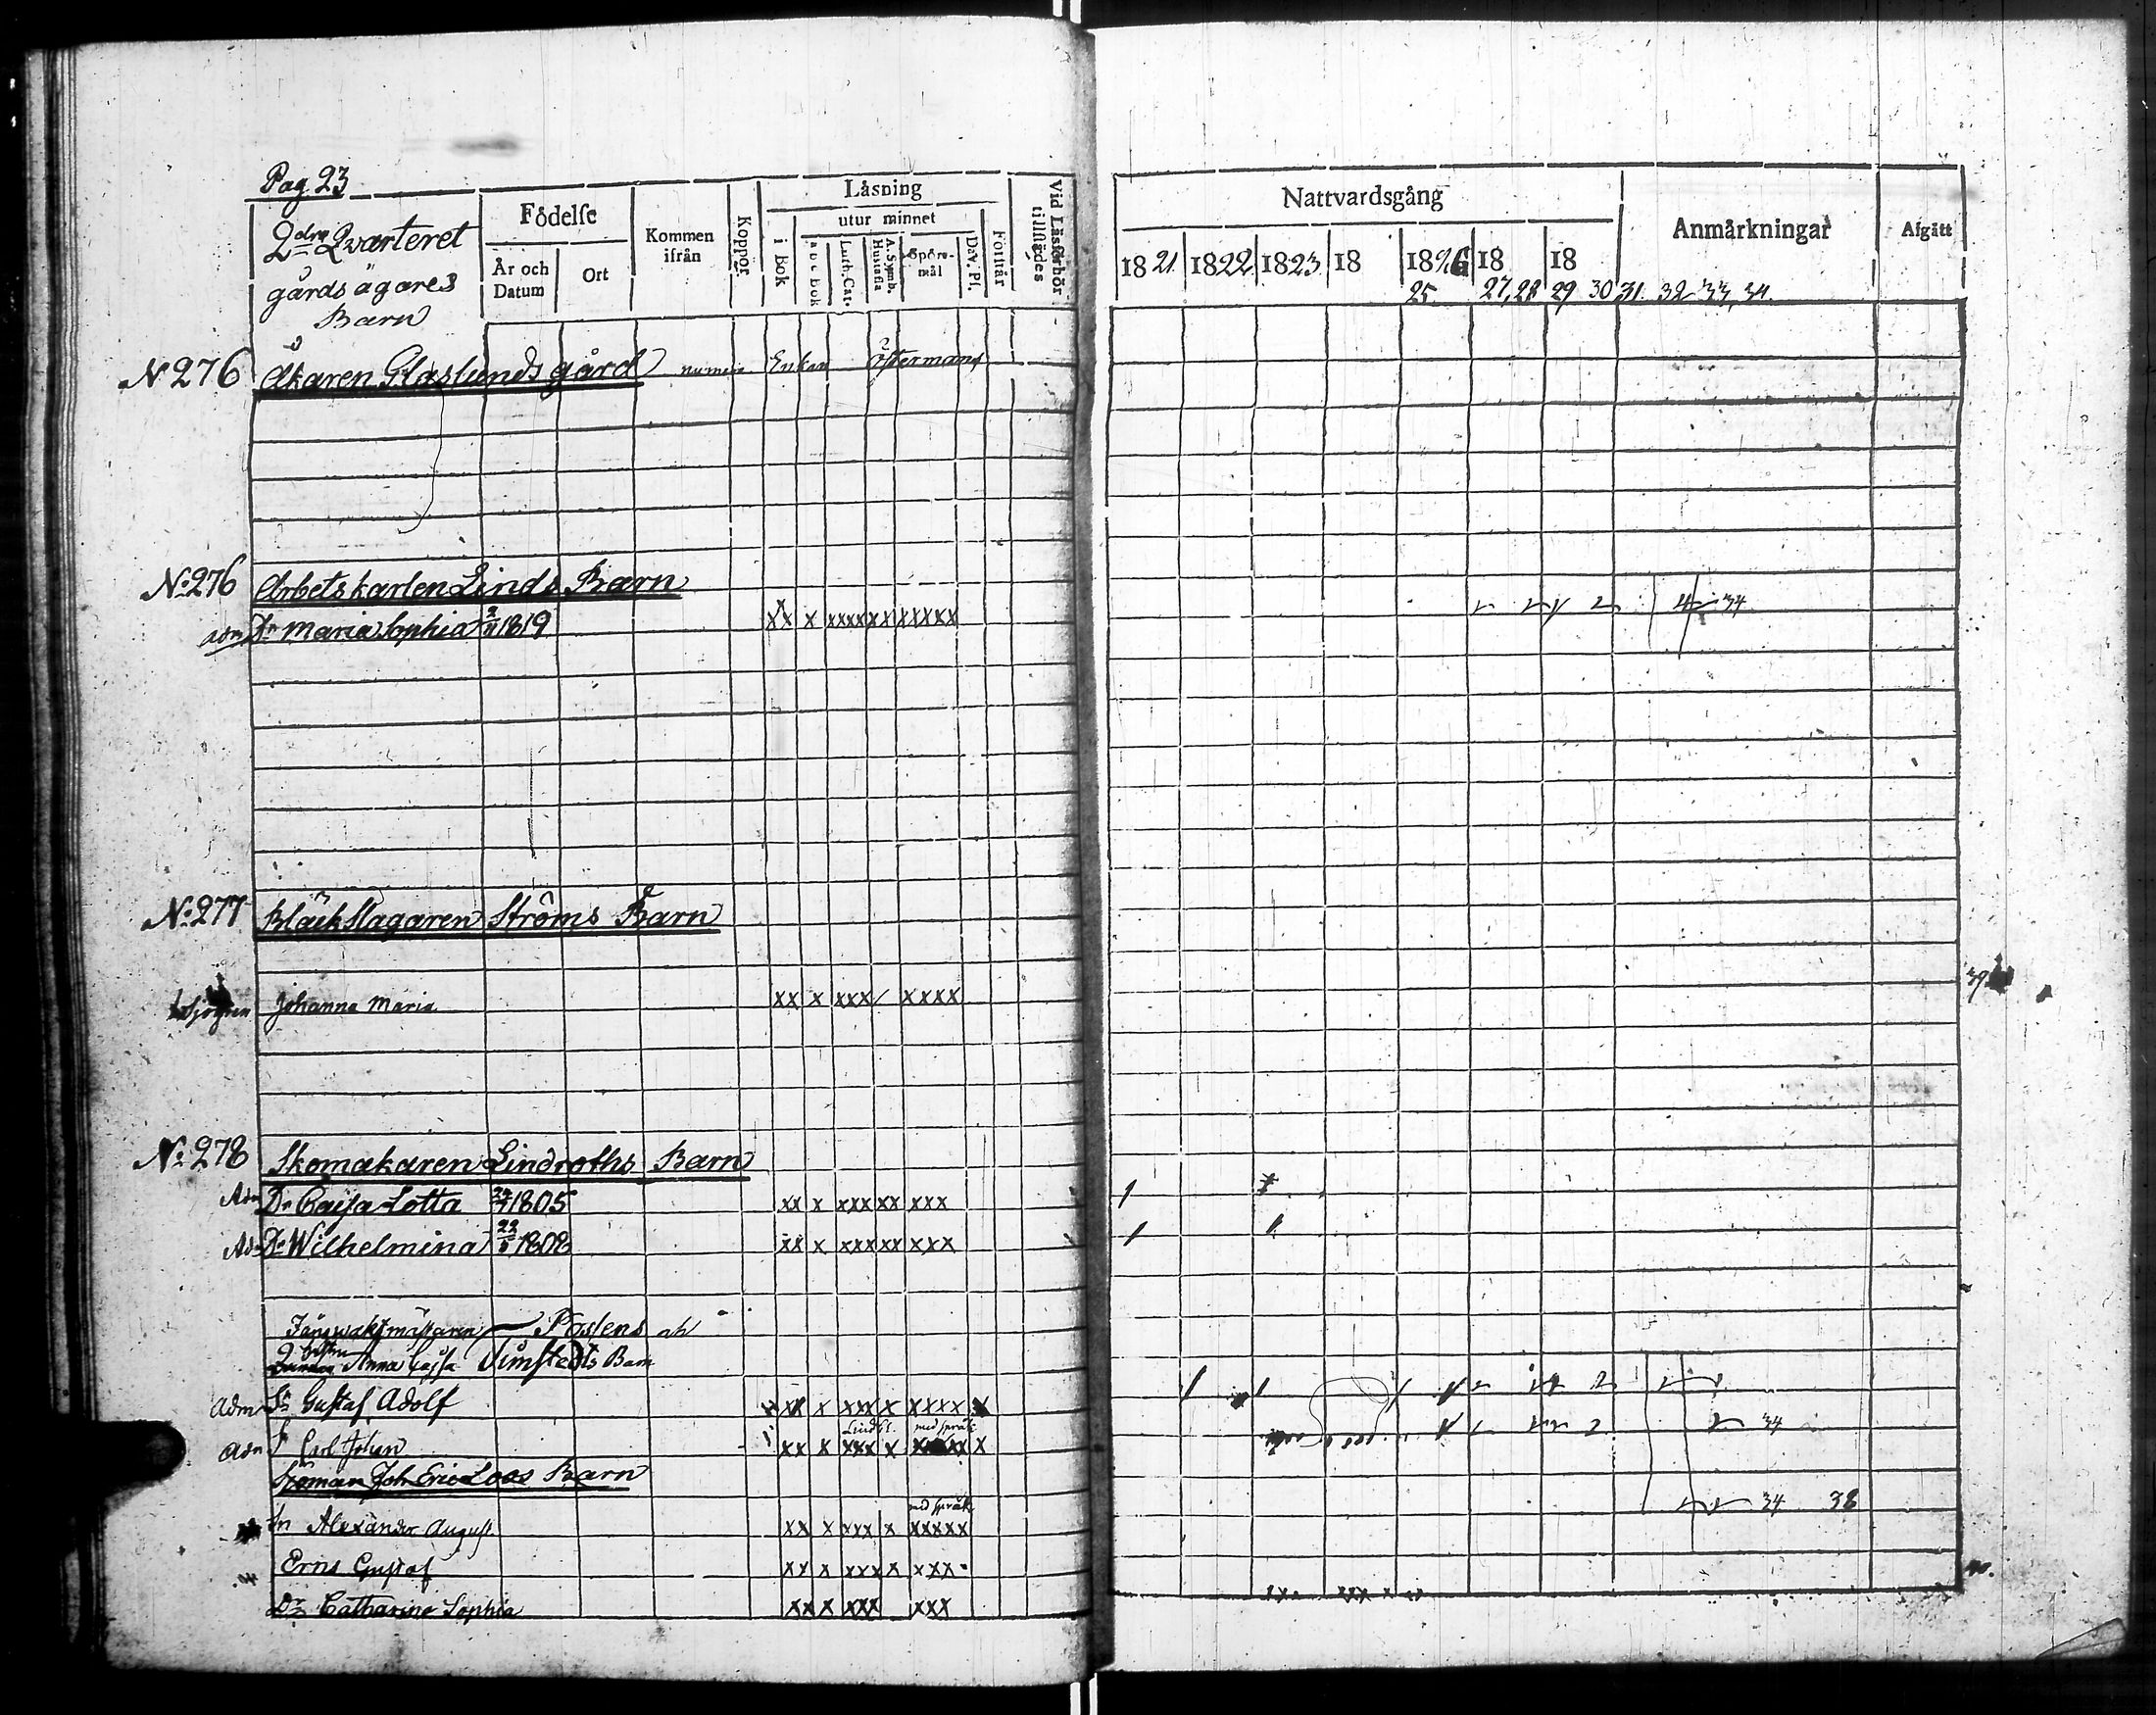 Pag 23
2dra Qvarteret
gårds ägares
Barn
Födelse
År och Datum
Ort
Kommen ifrån
Koppor
Läsning
i Bok
utur minnet
a b c Bok
Luth. Cat.
A. Symb. Hustafla
Spörsmål
Dav. Ps.
Förstår
Vid Läsförhör tillstädes
Nattvardsgång
18 21 1822 1823 18 18 26 18 18
25 27, 28 29 30 31 32 33, 34
Anmärkningar
Afgått
N 276 Åkaren Glaslunds gård numera Enkan Östermans
No 276 Arbetskarlen Linds Barn
adm Dr Maria Sophia 1819 xx x xxxx xx xxxxx 34
No 277 Bläckslagaren Ströms Barn
Sjögren Johanna Maria xx x xxx/ xxxx 39
No 278 Skomakaren Lindroths Barn
Adm Dr Cajsa Lotta 1805 xx x xxx xx xxx 1
Adm Dr Wilhelmina 22 1808 xx x xxx xx xxx 1 1
Postens
Anna Cajsa Barn
Adm Sn Gustaf Adolf xx x xxx x xxxx
med språk
adm Sn Carl Johan xx x xxx x x 34
Joh Eric Loos Barn
med språk
Sn Alexander August xx x xxx x xxxxx 34 38
Erns Gustaf xx x xxx x xxx
Dr Catharina Sophia xx x xxx xxx